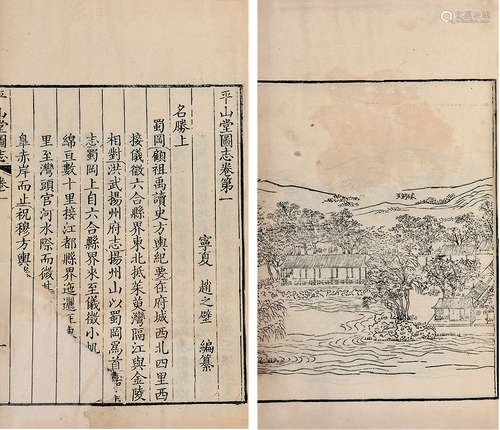 平山堂圖志卷第一
寧夏 趙之壁 編纂
名勝上
蜀岡顧祖禹讀史方輿紀要在府城西北四里西
接儀徵六合縣界東北抵茱萸灣隔江與金陵
相對洪武揚州府志揚州山以蜀岡爲首
志蜀岡上自六合縣界來至儀徵小帆
綿亘數十里接江都縣界迤邐正
里至灣頭官河水際而微其
阜赤岸而止祝穆方輿
平山堂圖志 卷一